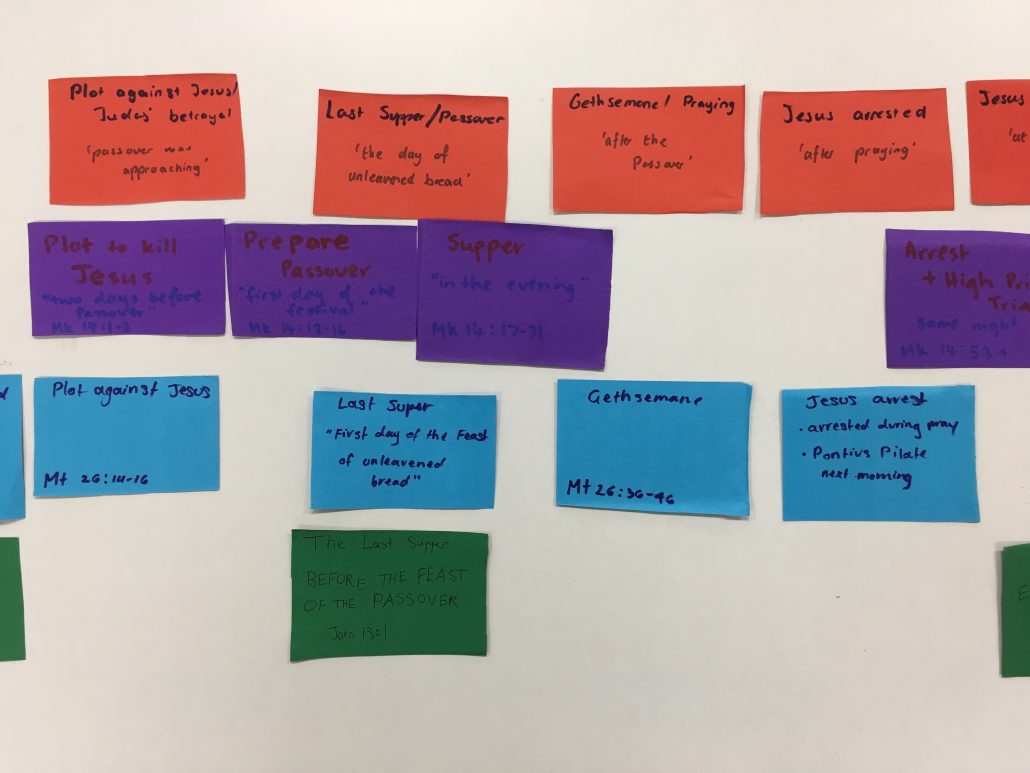 Plot against Jesus/
Judas' betrayal
'passover was
approaching'
Last Supper/Passover
'the day of
unleavened bread'
Gethsemane/ Praying
'after the
Passover'
Jesus arrested
'after praying'
Jesus
'at
Plot to kill
Jesus
"two days before
Passover"
Mk 14:1-2
Prepare
Passover
"first day of the
festival"
Mk 14:12-16
Supper
"in the evening"
Mk 14:17-31
Arrest
+ High Pri
Tria
same night
Mk 14:53+
Plot against Jesus
Mt 26:14-16
Last Super
"First day of the Feast
of unleavened
bread"
Gethsemane
Mt 26:36-46
Jesus arrest
• arrested during pray
• Pontius Pilate
next morning
The Last Supper
BEFORE THE FEAST
OF THE PASSOVER
John 13:1
E